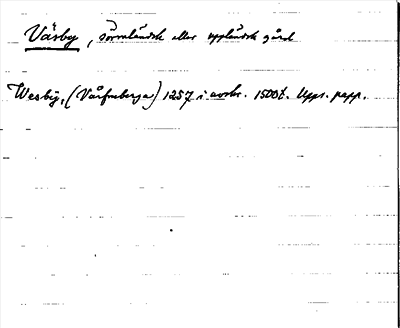 Väsby, sörmländsk eller uppländsk gård
Wesbij, (Våfruberga) 1257 i avskr. 1500t. Upps. papp.